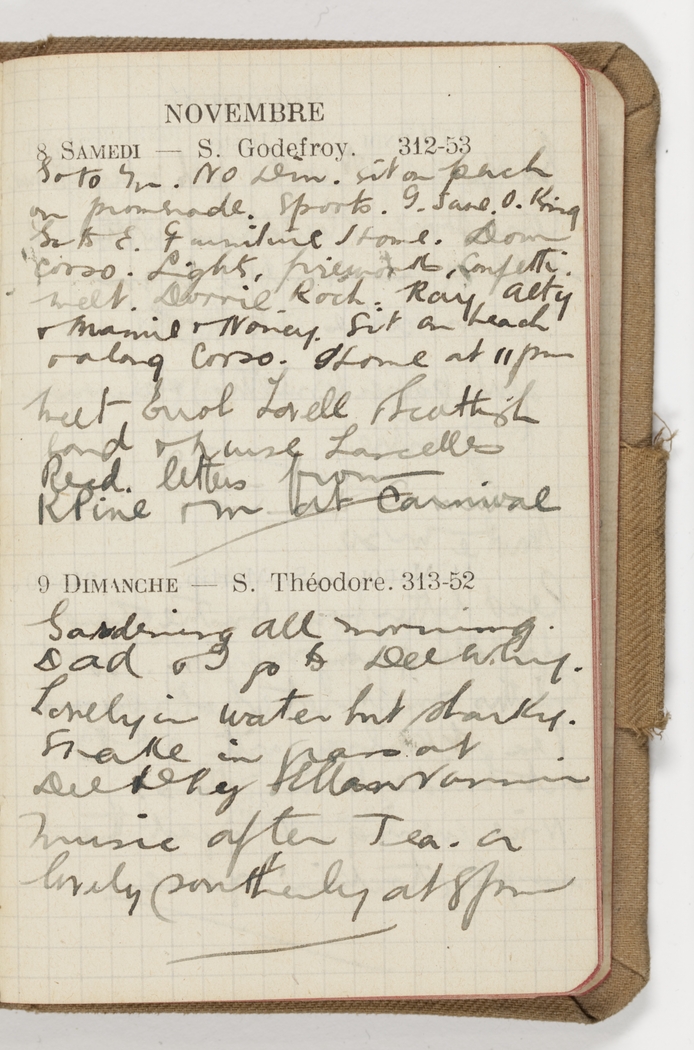 NOVEMBRE
8 SAMEDI — S. Godefroy. 312-53
Go to . No Dim. sit on beach
on promenade. Sports. G. Sane. O. King
Go to E. Furniture Home. Down
Corso. Lights, fireworks, Confetti.
meet. Dorrie Roch. Ray Alty
+ Mamie + Nancy. Sit on beach
+ along Corso. Home at 11 pm
Meet Errol Lovell Scottish
band + nurse Lascelles
Recd. letters from
K Pine + m at Carnival
9 DIMANCHE — S. Théodore. 313-52
Gardening all morning.
Dad + I go to Dee Why.
Lovely in water but sharky.
Snake in grass at
Dee Why Allan Vannin
Music after Tea. a
lovely southerly at 8 pm